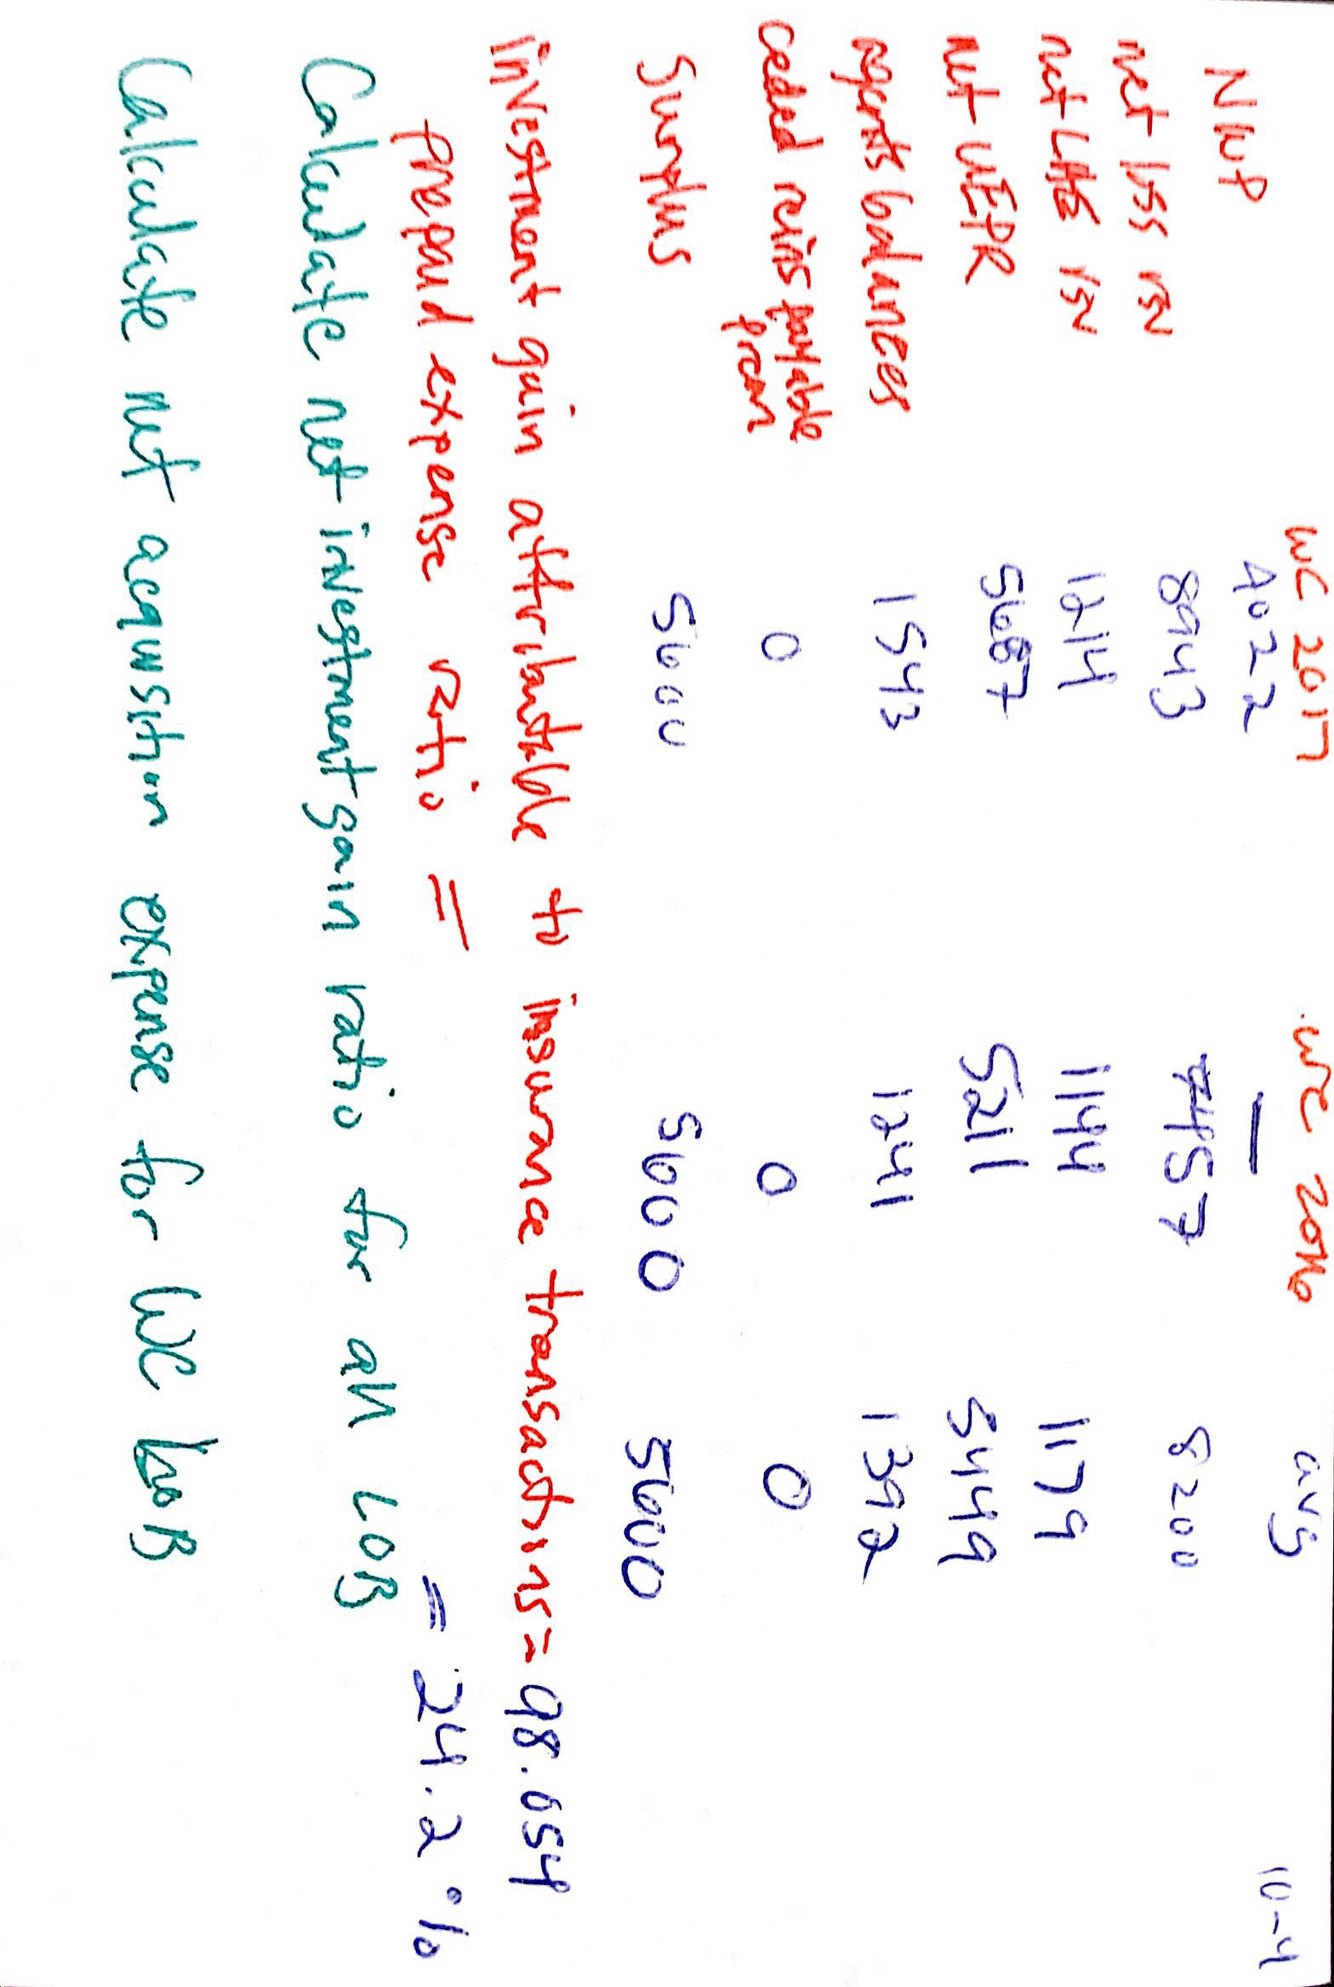 10-4
WC 2017 WC 2016 avg
NWP 4022 —
net loss rsv 8943 7457 8200
net LAE rsv 1214 1144 1179
net UEPR 5687 5211 5449
agents balances 1543 1241 1392
ceded reins payable prem 0 0 0
Surplus 5600 5600 5600
investment gain attributable to insurance transactions = 98.054
prepaid expense ratio = = 24.2%
Calculate net investment gain ratio for all LOB
Calculate net acquisition expense for WC LOB